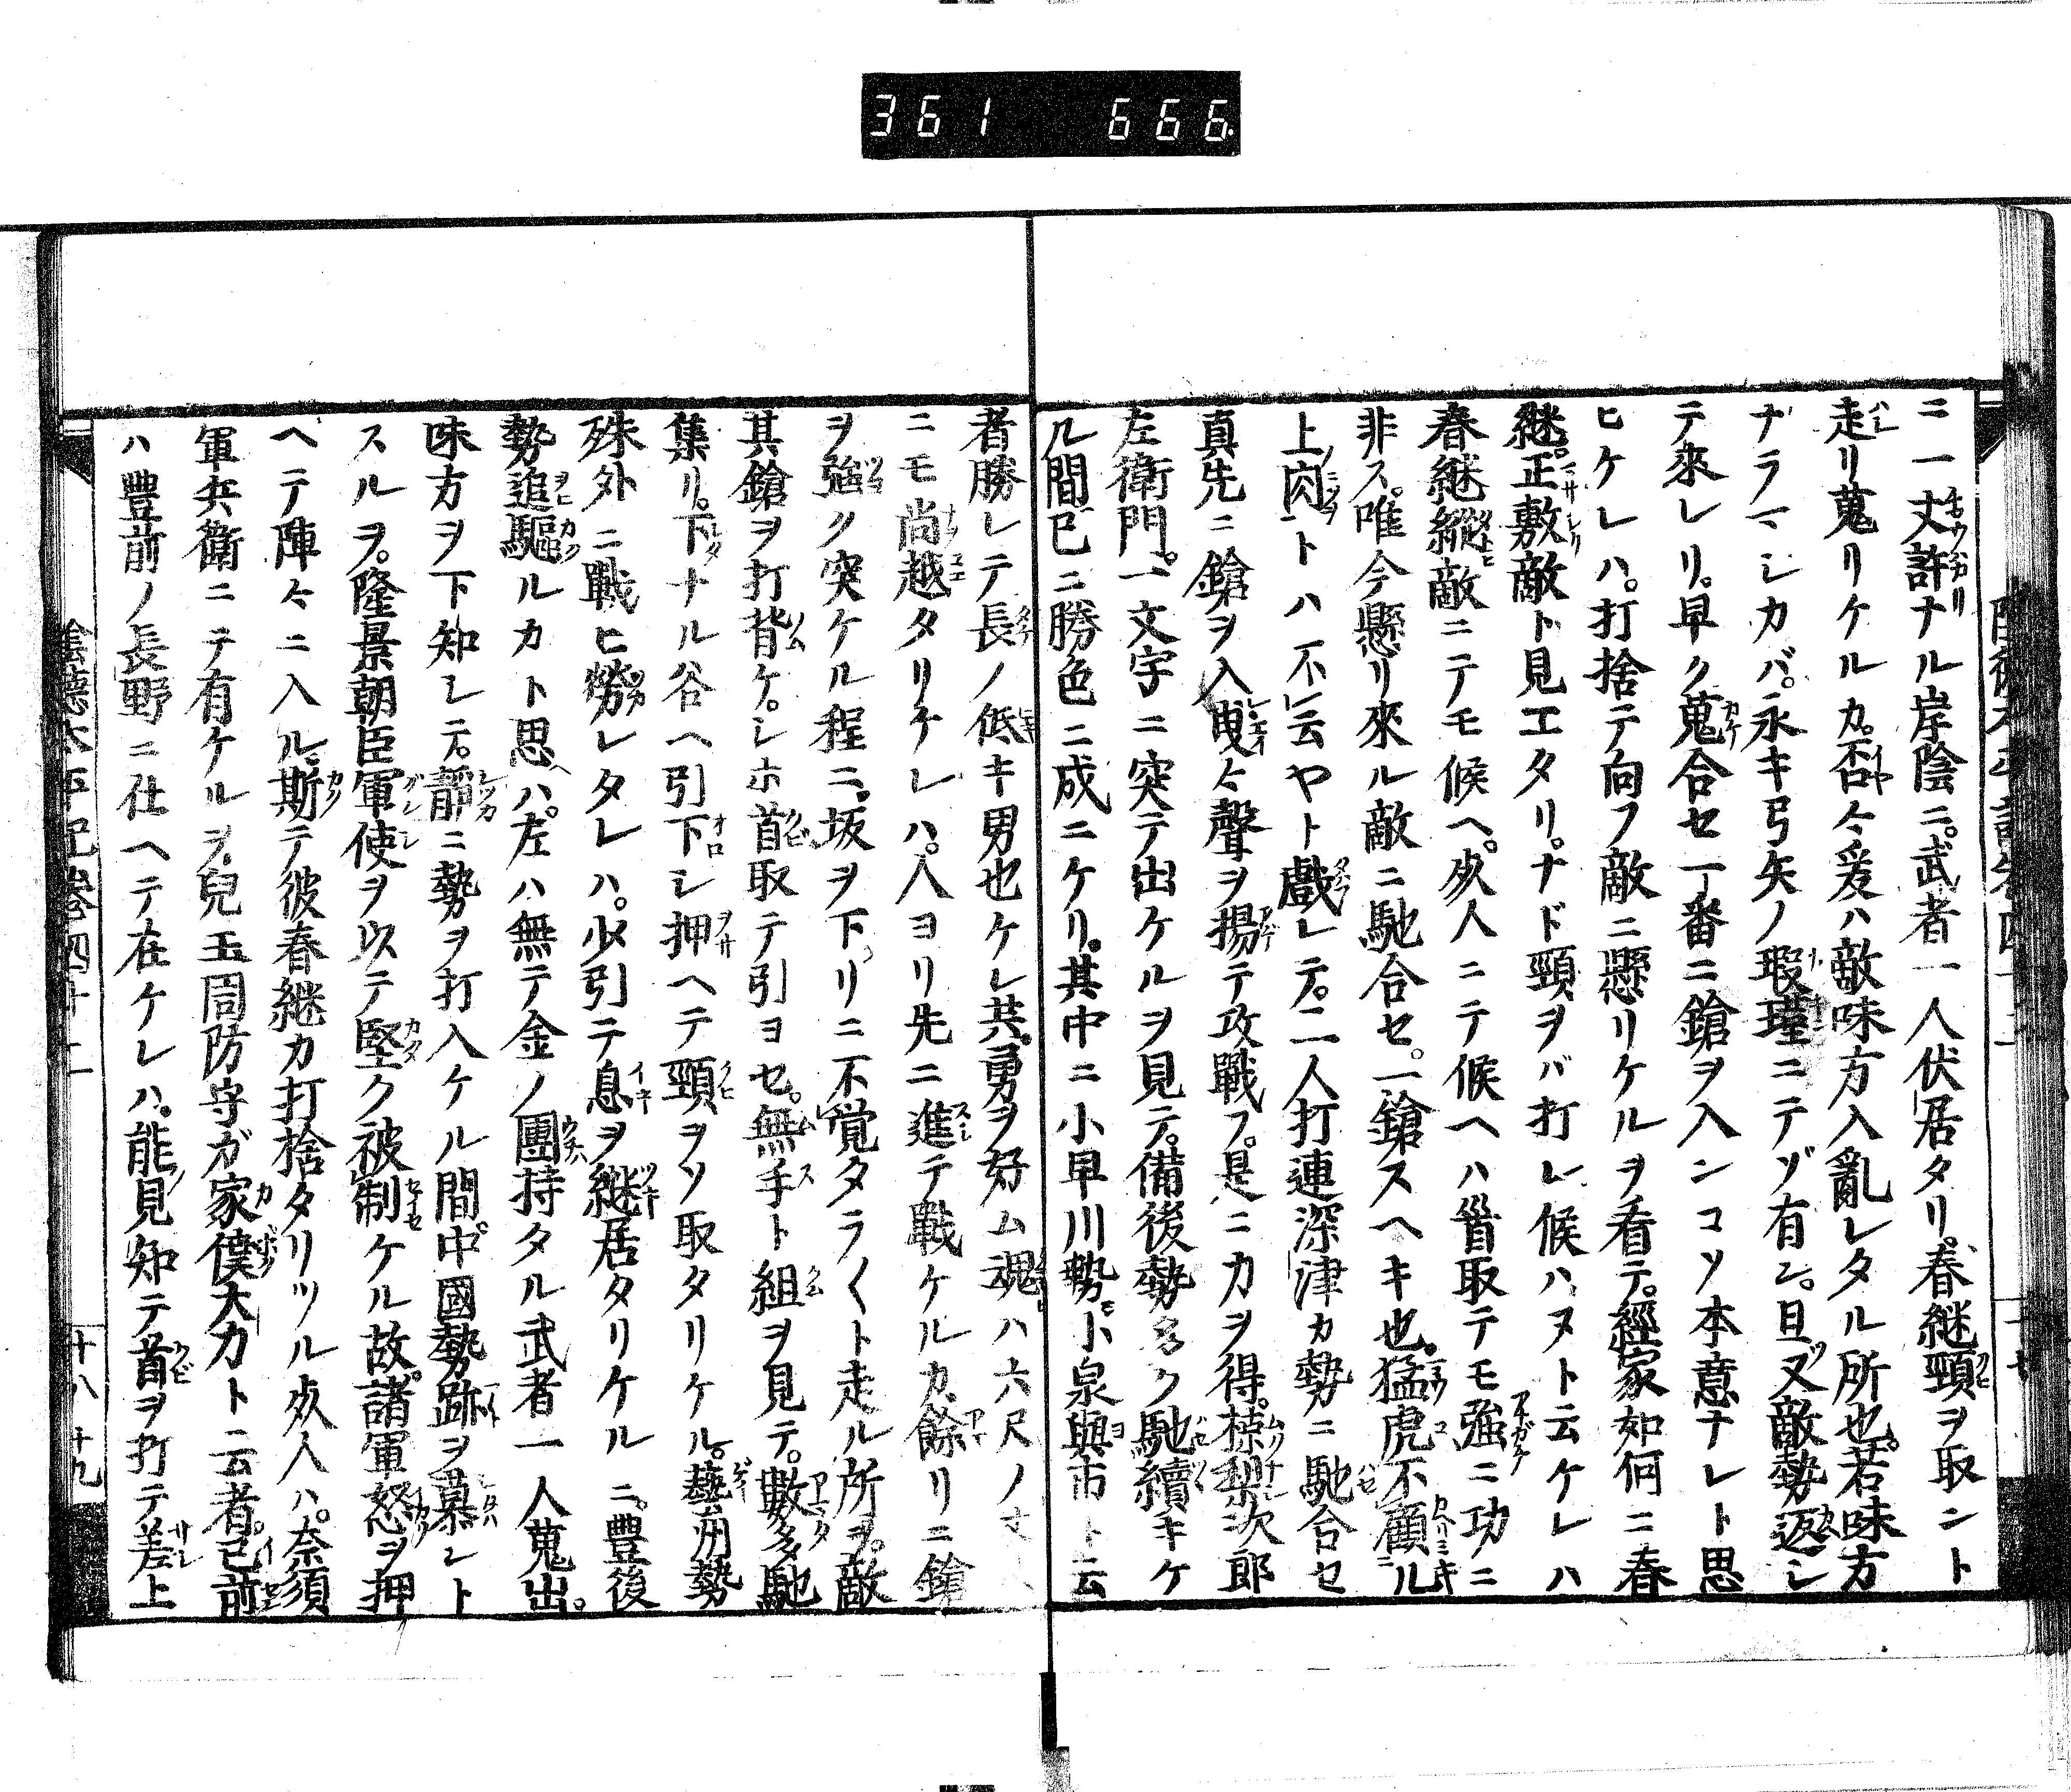 361 666
ニ一丈許ナル岸陰ニ。武者一人伏居タリ。春継頸ヲ取ント
走リ蒐リケルカ。否々爰ハ敵味方入亂レタル所也。若味方
ナラマシカバ。永キ弓矢ノ瑕瑾ニテゾ有ン。且又敵勢返シ
テ來レリ。早ク蒐合セ一番ニ鎗ヲ入ンコソ本意ナレト思
ヒケレハ。打捨テ向フ敵ニ懸リケルヲ看テ。經家如何ニ春
継。正敷敵ト見エタリ。ナド頸ヲバ打レ候ハヌト云ケレハ
春継縦敵ニテモ候ヘ。㚑人ニテ候ヘハ首取テモ強ニ功ニ
非ス。唯今懸リ來ル敵ニ馳合セ。一鎗スヘキ也。猛虎不顧ル
上肉トハ不云ヤト戯レテ。二人打連深津カ勢ニ馳合セ
真先ニ鎗ヲ入曳々聲ヲ揚テ攻戰フ。是ニカヲ得。椋梨次郎
左衛門。一文字ニ突テ出ケルヲ見テ。備後勢多ク馳續キケ
ル間已ニ勝色ニ成ニケリ。其中ニ小早川勢ニ小泉與市ト云
者勝レテ長ノ低キ男也ケレ共。勇ヲ好ム魂ハ六尺ノ
ニモ尚越タリケレハ。人ヨリ先ニ進テ戰ケルカ。餘リニ鎗
ヲ強ク突ケル程ニ。坂ヲ下リニ不覚タラ〱ト走ル所ヲ。敵
其鎗ヲ打背ケ。シホ首取テ引ヨセ。無手ト組ヲ見テ。數多馳
集リ。下ナル谷ヘ引下シ押ヘテ頸ヲソ取タリケル。藝州勢
殊外ニ戰ヒ勞レタレハ。少引テ息ヲ継居タリケルニ。豊後
勢追驅ルカト思ヘハ。左ハ無テ金ノ團持タル武者一人蒐出。
味方ヲ下知シテ。靜ニ勢ヲ打入ケル間。中國勢跡ヲ慕ント
スルヲ。隆景朝臣軍使ヲ以テ堅ク被制ケル故。諸軍怒ヲ押
ヘテ陣々ニ入ル。斯テ彼春継カ打捨タリツル㚑人ハ。奈須
軍兵衛ニテ有ケルヲ。兒玉周防守ガ家僕大力ト云者。已前
ハ豊前ノ長野ニ仕ヘテ在ケレハ。能見知テ首ヲ打テ差上
陰德太平記巻四十二 十八 十九